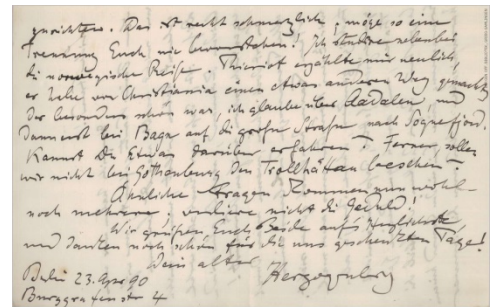 zurichten. Das ist recht schmerzlich; möge so eine
Trennung Euch nie bevorstehen! Ich studire nebenbei
die norwegische Reise. Thieriot erzählte mir neulich,
er habe von Christiania einen etwas anderen Weg gemacht,
der besonders schön war, ich glaube über Ladalen, und
dann erst bei Baga auf die große Straße nach Sognefjord.
Kannst Du Etwas darüber erfahren? Ferner sollen
wir nicht bei Gothenburg den Trollhättan besehen?
Ähnliche Fragen kommen nun wohl
noch mehrere; verliere nicht die Geduld!
Wir grüßen Euch Beide auf's Herzlichste,
und danken noch schön für die uns geschenkten Tage!
Dein alter
Herzogenberg
Berlin 23. Apr 90
Burggrafenstr 4